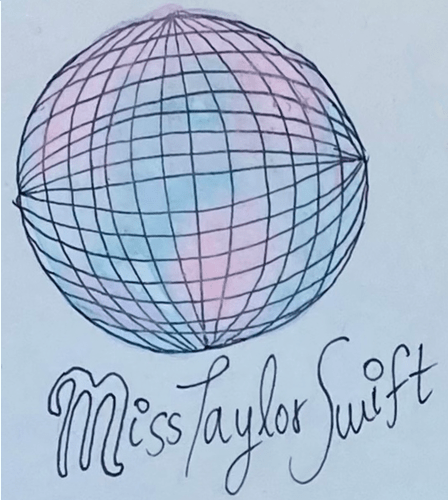 Miss Taylor Swift